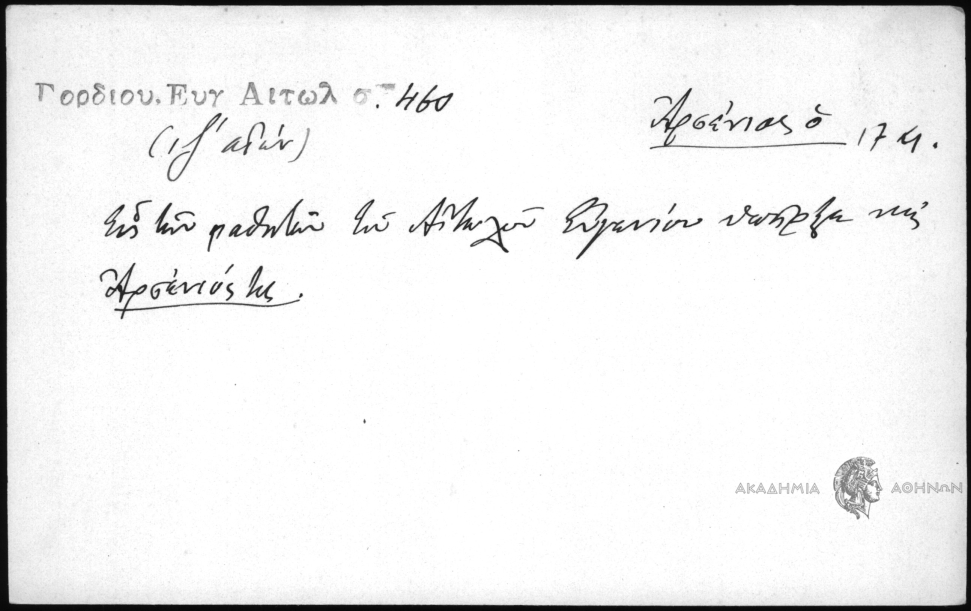 Γορδιου, Ευγ Αιτωλ σ. 460
Ἀρσένιος ὁ 17 αι.
(ιζ΄ αἰών)
Εἷς τῶν μαθητῶν τοῦ Αἰτωλοῦ Εὐγενίου ὑπῆρξε καὶ
Ἀρσένιός τις.
ΑΚΑΔΗΜΙΑ ΑΘΗΝΩΝ